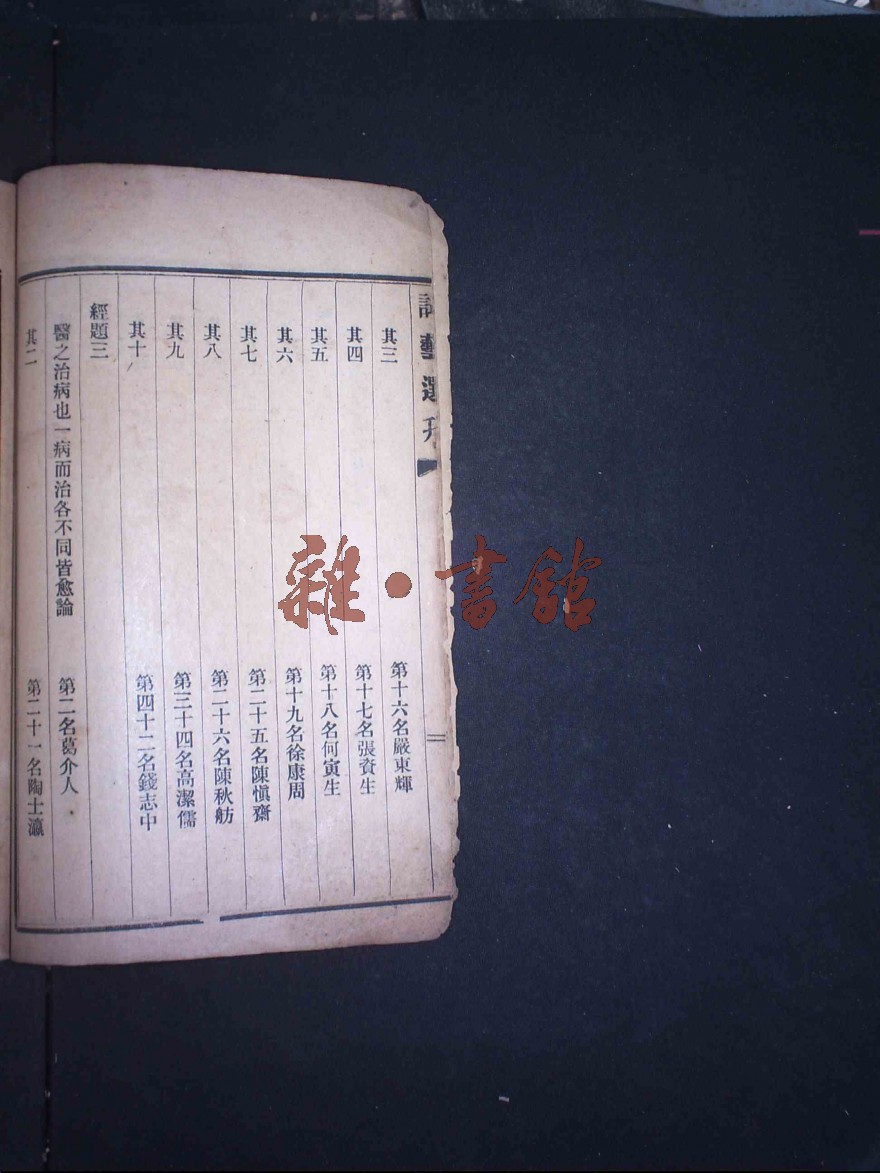 藝選
其三 第十六名嚴東輝
其四 第十七名張資生
其五 第十八名何寅生
其六 第十九名徐康周
其七 第二十五名陳愼齋
其八 第二十六名陳秋舫
其九 第三十四名高潔儒
其十 第四十二名錢志中
經題三
醫之治病也一病而治各不同皆愈論 第二名葛介人
其二 第二十一名陶士瀛
雜·書館